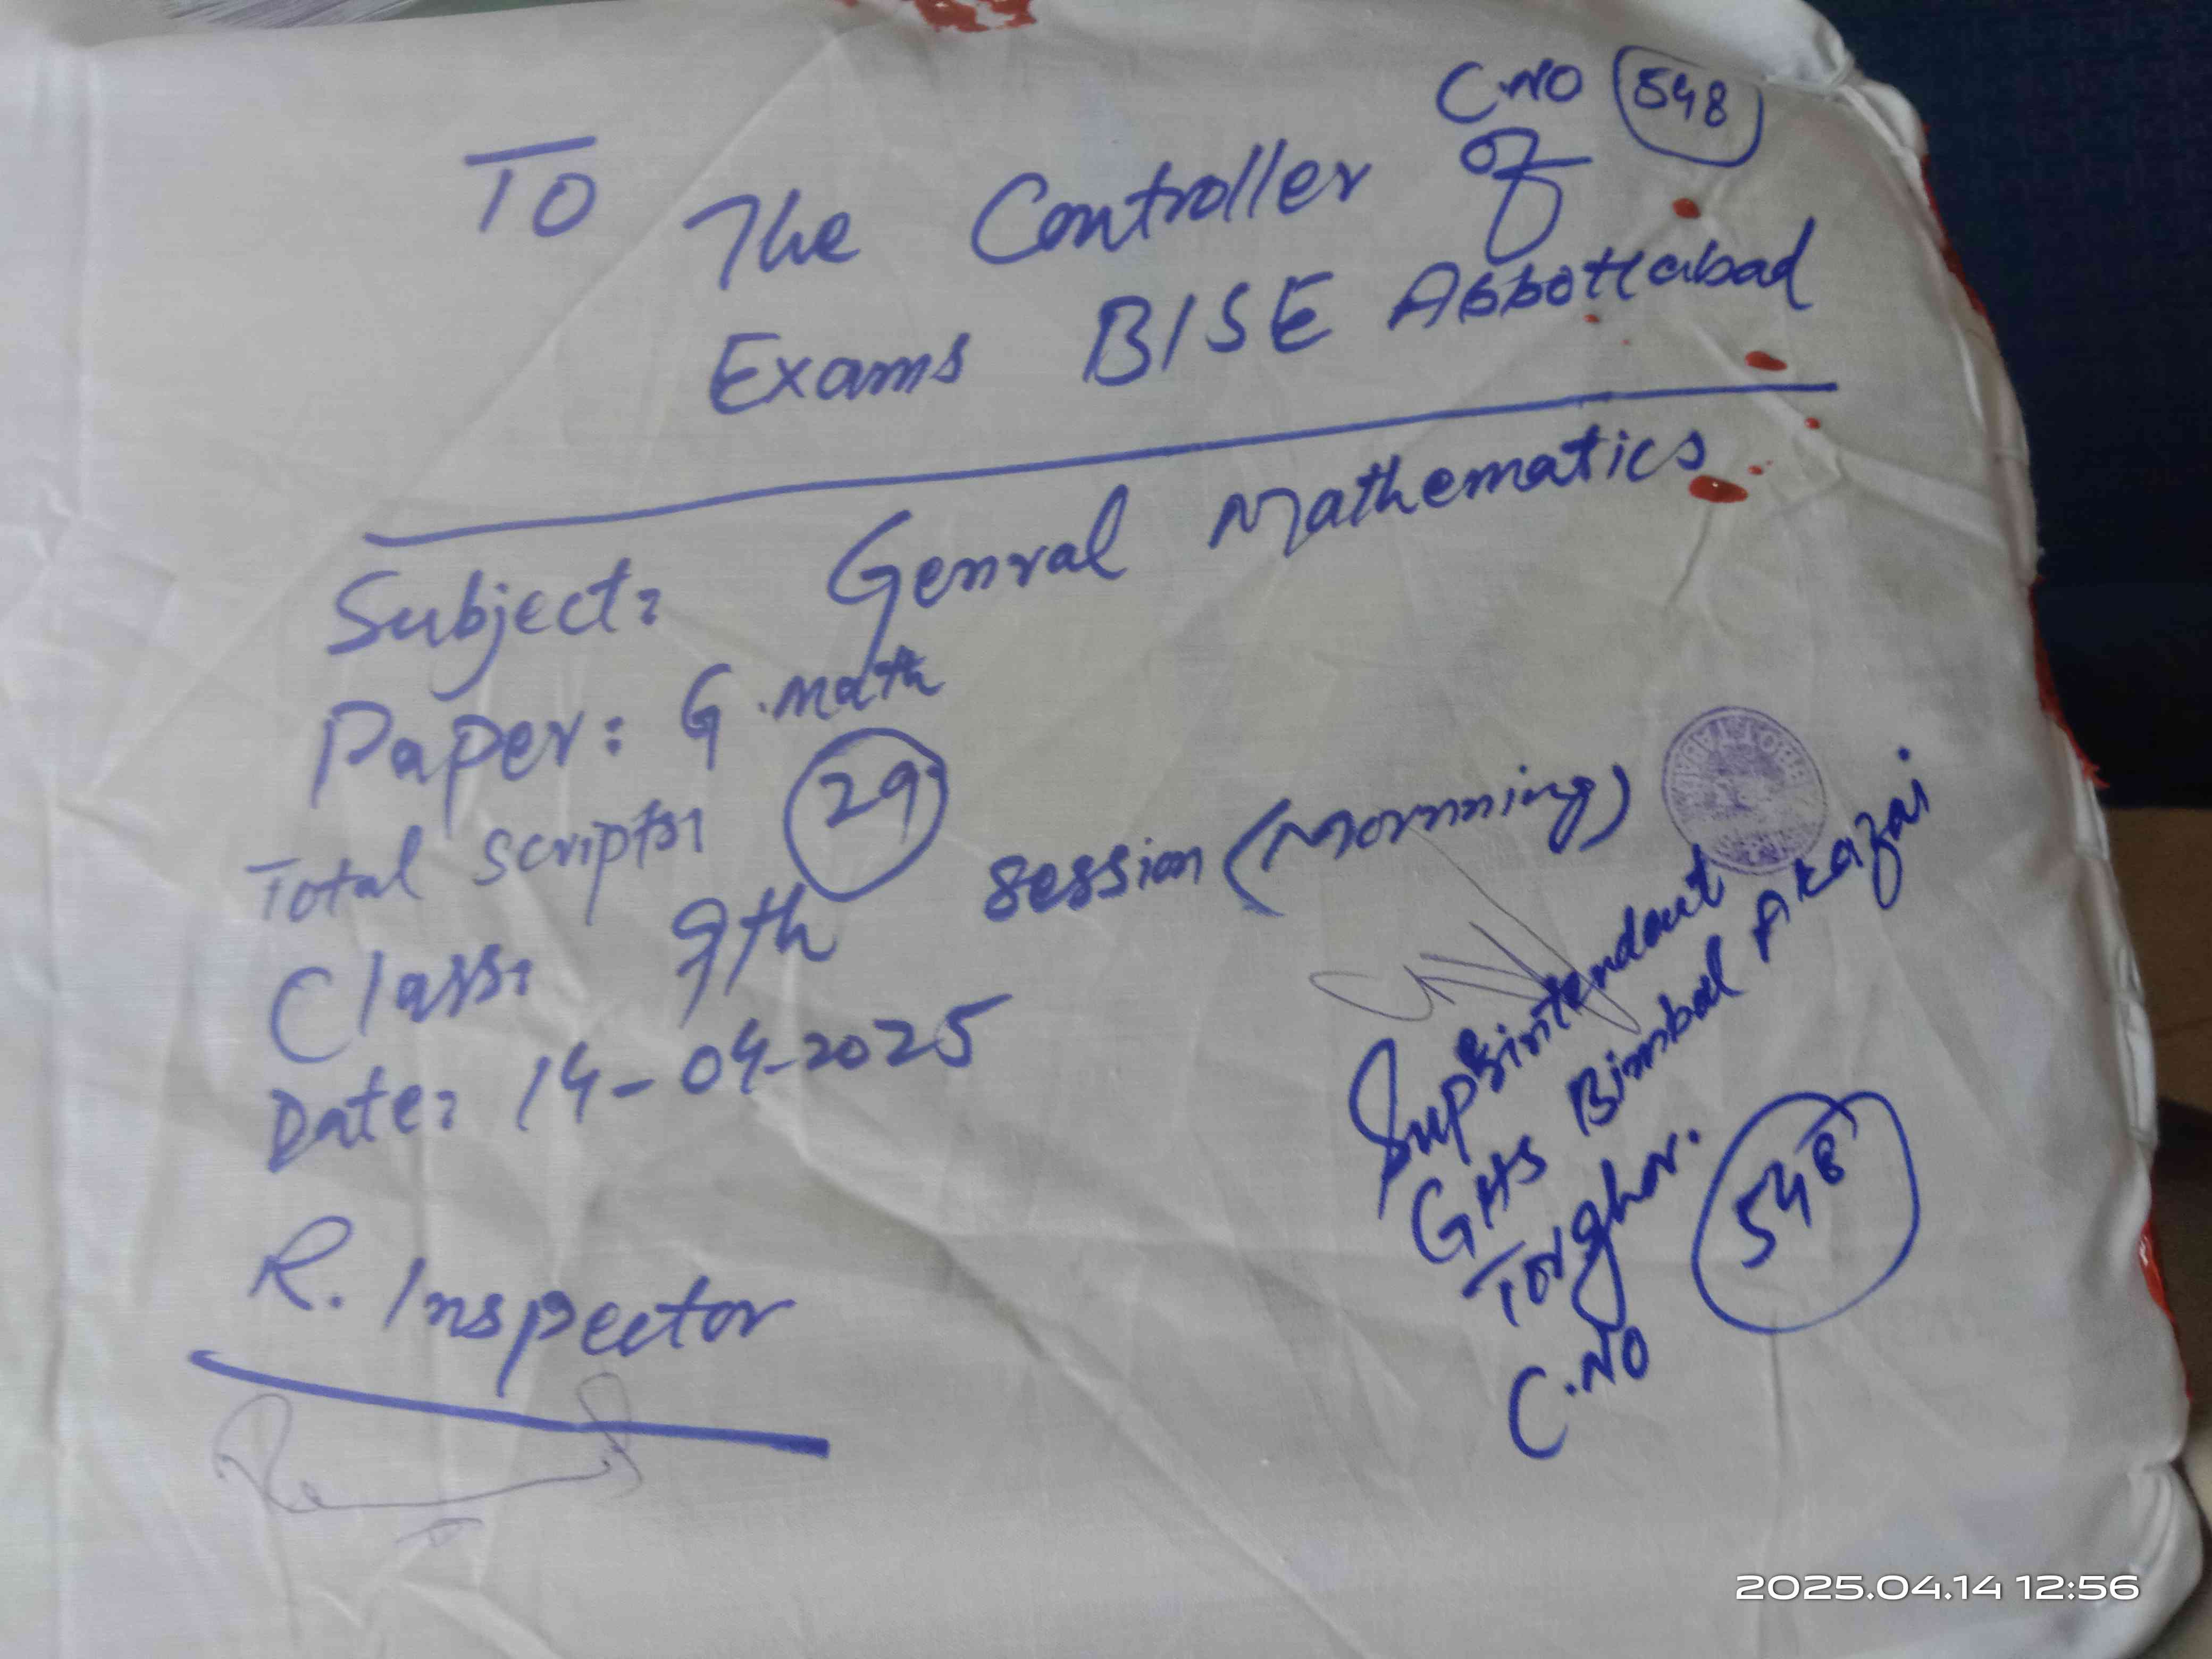 C.NO 548
To The Controller of
Exams BISE Abbottabad
Subject: Genral Mathematics
Paper: G.math
Total scripts: 29
Class: 9th session (Mornning)
Date: 14-04-2025
Supsintendant
GHS Bimbal Akazai
Torghar.
C.NO 548
R. Inspector
2025.04.14 12:56